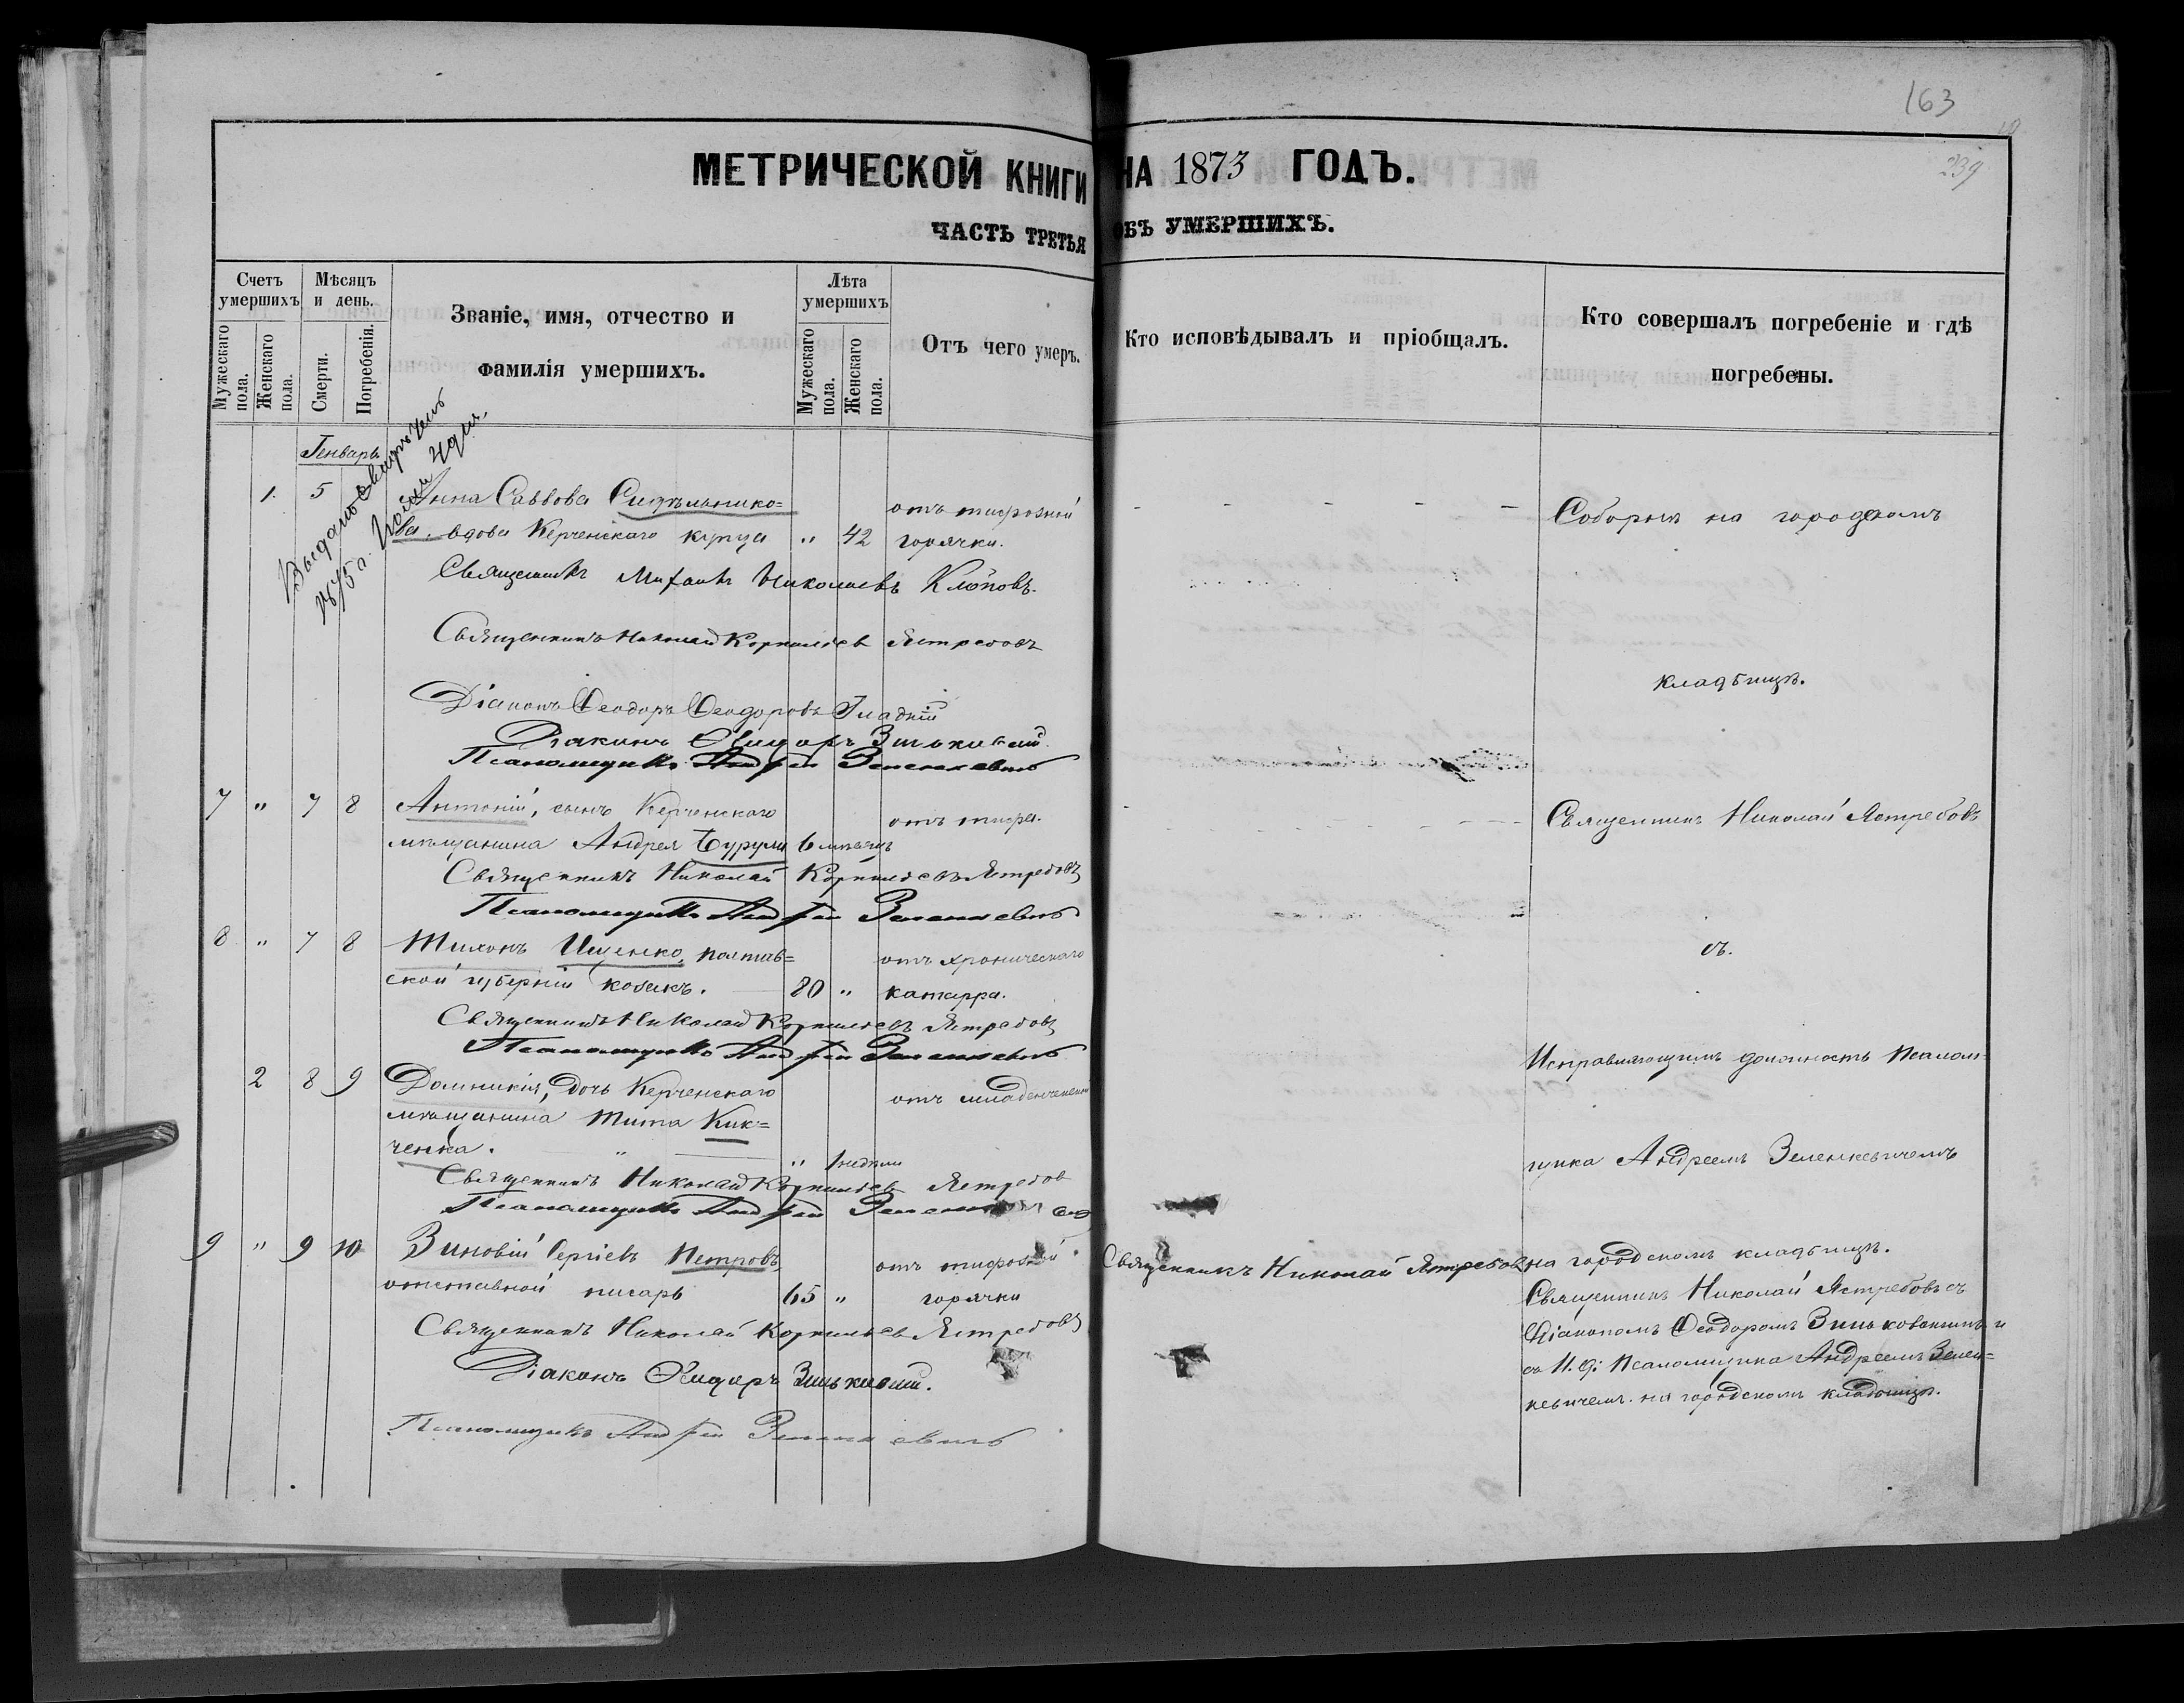 163
239
МЕТРИЧЕСКОЙ КНИГИ НА 1873 ГОДЪ.
ЧАСТЬ ТРЕТЬЯ ОБЪ УМЕРШИХЪ.
Счетъ умершихъ
Мужескаго пола.
Женскаго пола.
Мѣсяцъ и день.
Смерти.
Погребенія.
Званіе, имя, отчество и
фамилія умершихъ.
Лѣта умершихъ
Мужескаго пола.
Женскаго пола.
Отъ чего умеръ.
Кто исповѣдывалъ и пріобщалъ.
Кто совершалъ погребеніе и гдѣ
погребены.
Генварь
1. 5 Анна Саввова отъ тифозной Соборнѣ на городскомъ
ва. вдова Керченскаго купца " 42 горячки.
Священникъ Михаилъ Николаевъ Клоповъ.
Священникъ Николай Корнильев Ястребовъ
кладбищѣ.
Діаконъ Ѳеодоръ Ѳеодоровъ Гладкій
Діаконъ Зиньковскій
Псаломщикъ Андрей Зеленкевичъ
7 " 7 8 Антоній, сынъ Керченскаго отъ тифа. Священникъ Николай Ястребовъ
мѣщанина Андрея 6 мѣсяцъ
Священникъ Николай Корнильевъ Ястребовъ
Псаломщикъ Андрей Зеленкевичъ
8 " 7 8 Тихонъ Ищенко, Полтав= отъ хроническаго съ.
ской губерніи козакъ. 80 " катарра.
Священникъ Николай Корнильевъ Ястребовъ
Псаломщикъ Андрей Зеленкевичъ
Исправляющимъ должность Псалом=
2 8 9 Домникія, дочь Керченскаго отъ младенческой
мѣщанина Тита Кик=
ченка. " 1 недѣли
щика Андреемъ Зеленкевичемъ
Священникъ Николай Корнильев Ястребов
Псаломщикъ Андрей
9 " 9 10 Зиновій Сергіевъ Петровъ, отъ тифозной Священникъ Николай Ястребов на городскомъ кладбищѣ.
отставной писарь 65 " горячки
Священникъ Николай Ястребовъ съ
Священникъ Николай Корнильев Ястребовъ
Діакономъ Ѳеодоромъ Зиньковскимъ и
Діаконъ Зиньковскій.
съ И. д: Псаломщика Андреемъ Зелен=
кевичемъ. на городскомъ кладбищѣ.
Псаломщикъ Андрей Зеленкевичъ